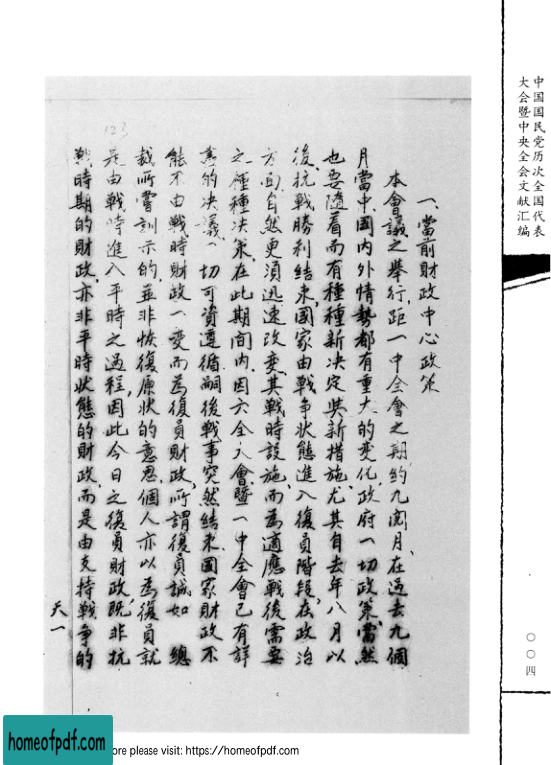 中国国民党历次全国代表
大会暨中央全会文献汇编
〇〇四
123
一、當前財政中心政策
本會議之舉行，距一中全會之期約九閱月，在過去九個
月當中國內外情勢都有重大的變化，政府一切政策，當然
也要隨着而有種種新決定與新措施，尤其自去年八月以
後，抗戰勝利結束，國家由戰爭狀態進入復員階段，在政治
方面自然更須迅速改變其戰時設施，而為適應戰後需要
之種種決策，在此期間內，因六全大會暨一中全會已有詳
的决議，一切可資遵循，嗣後戰事突然結束，國家財政不
能不由戰時財政一變而為復員財政，所謂復員，誠如 總
裁所嘗訓示的，並非恢復原狀的意思，個人亦以為復員就
是由戰時進入平時之過程，因此今日之復員財政，既非抗
戰時期的財政，亦非平時狀態的財政，而是由支持戰爭的
天一
homeofpdf.com
ore please visit: https://homeofpdf.com